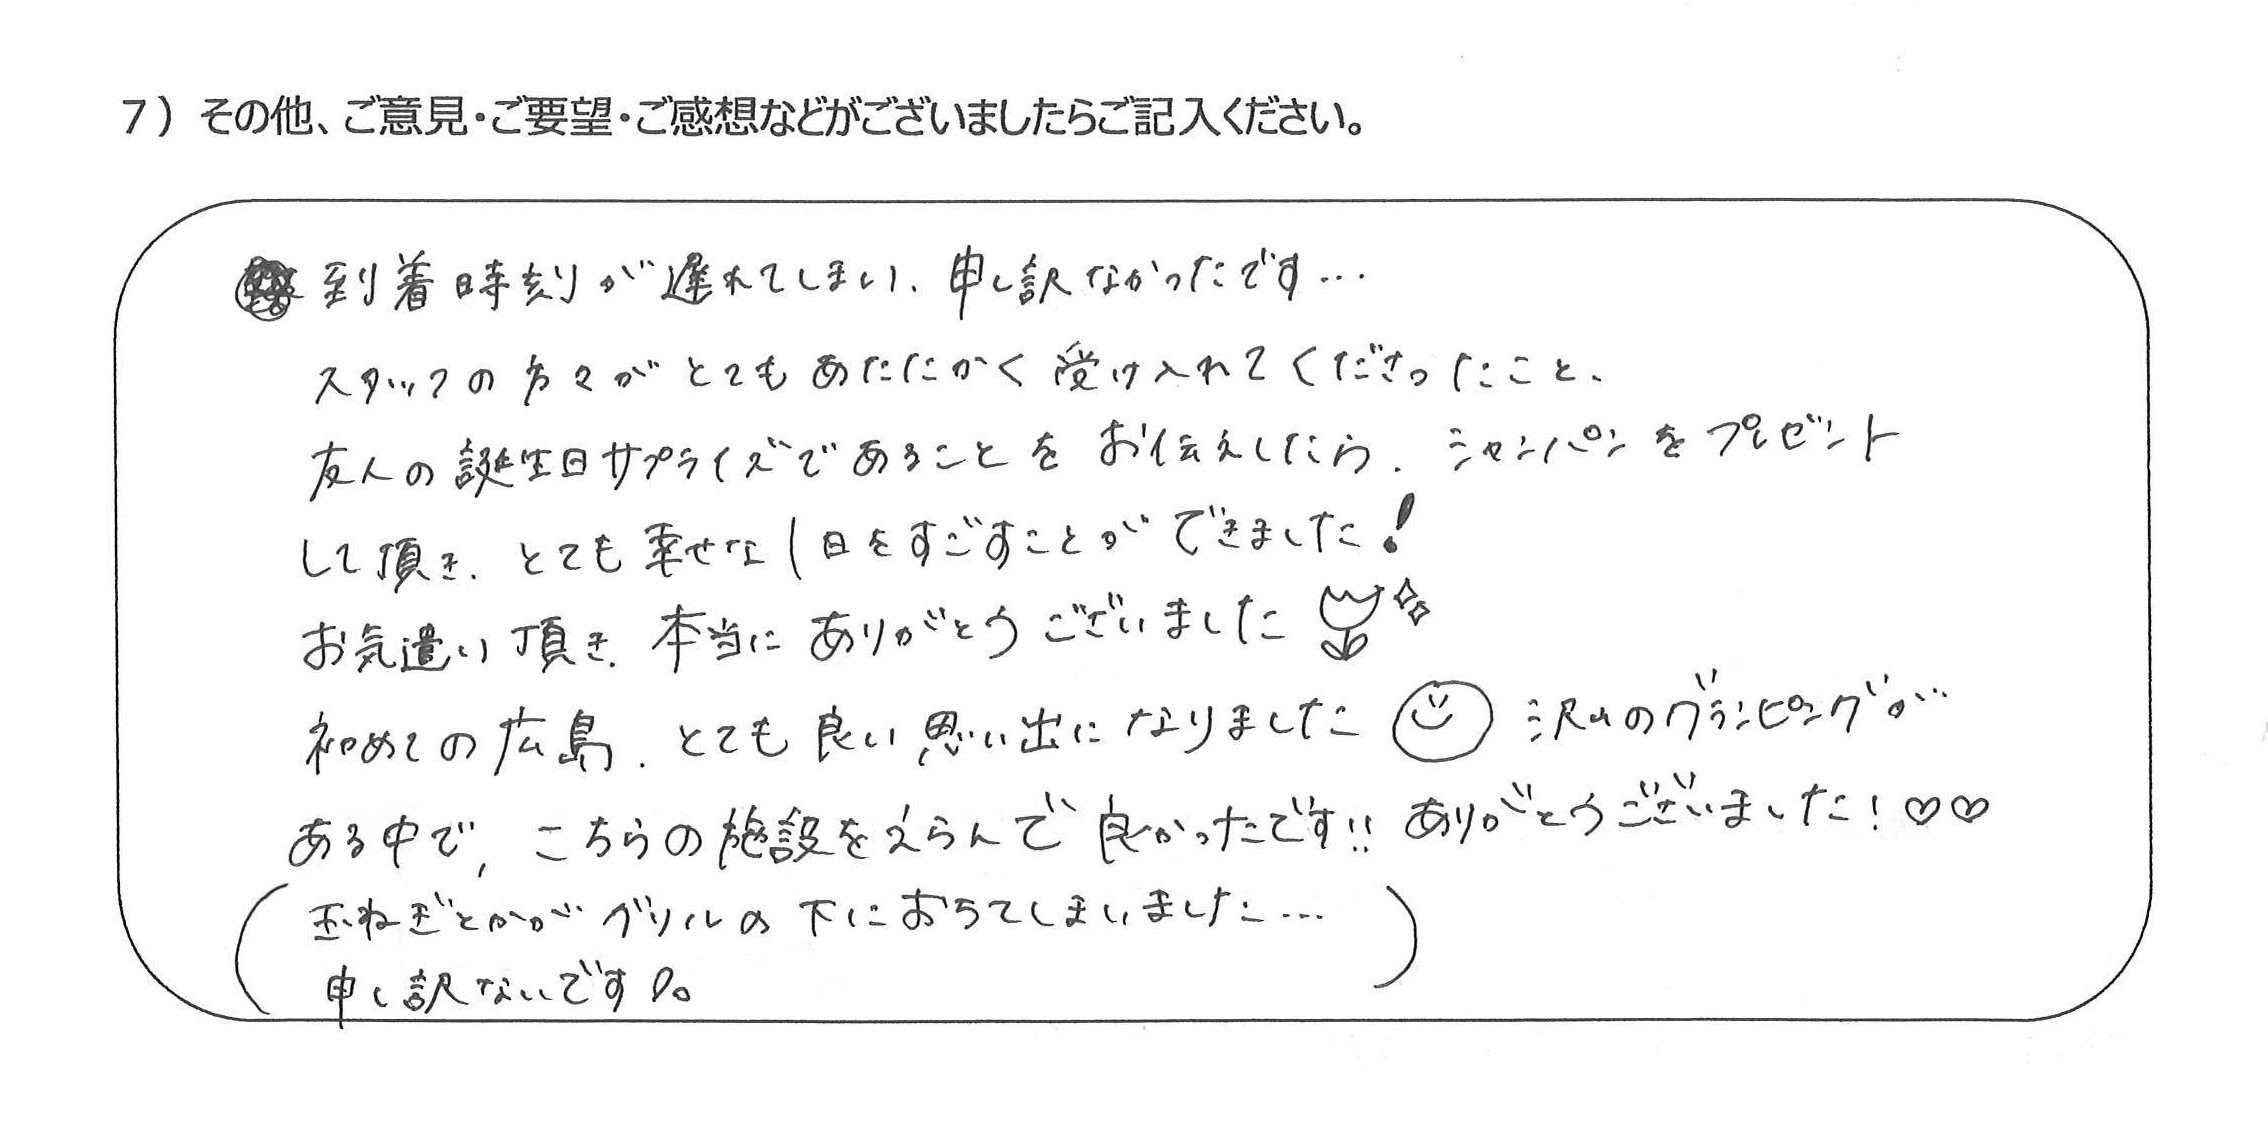 7）その他、ご意見・ご要望・ご感想などがございましたらご記入ください。
到着時刻が遅れてしまい、申し訳なかったです…
スタッフの方々がとてもあたたかく受け入れてくださったこと、
友人の誕生日サプライズであることをお伝えしたら、シャンパンをプレゼント
して頂き、とても幸せな1日をすごすことができました！
お気遣い頂き、本当にありがとうございました
初めての広島、とても良い思い出になりました 沢山のグランピングが
ある中で、こちらの施設をえらんで良かったです!! ありがとうございました！♡♡
（玉ねぎとかがグリルの下におちてしまいました…
申し訳ないです。）